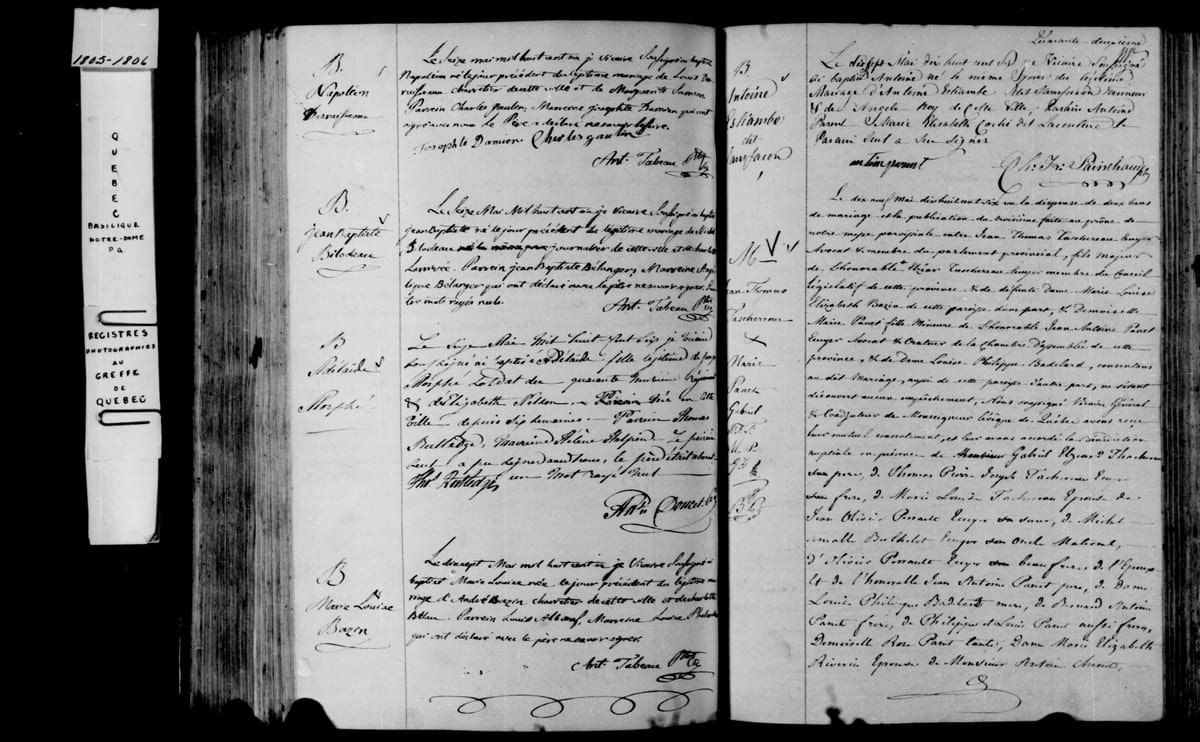 1805-1806
QUEBEC
BASILIQUE
NOTRE-DAME
P.Q
REGISTRES
PHOTOGRAPHIES
AU
GREFFE
DE
QUEBEC
B.
Napoléon
Le Seize mai mil huit cent six je Vicaire Soussigné ai baptisé
Napoléon né le jour précédent du légitime mariage de Louis
charretier de cette ville et de Marguerite Samson
Parrein Charles Gaulin, Marreine Josephte Damien qui ont
signé avec nous le Père a déclaré ne savoir le faire.
Josephte Damien Charles gaulin
Ant. Tabeau Ptre
B.
jean Baptiste
Bilodeau
Le Seize Mai Mil huit cent six je Vicaire Soussigné ai baptisé
jean Baptiste né le jour précédent du légitime mariage de Michel
Bilodeau journalier de cette ville et de
Larrivée. Parrein jean Baptiste Bélanger, Marreine
Bélanger qui ont déclaré avec le père ne savoir signer.
mots rayés nuls.
Ant. Tabeau Ptre
B
Adélaide
Morphé
Le Seize Mai Mil huit Cent Six je Vicaire
Soussigné ai baptisé Adélaide fille légitime de
Morphé Soldat du quarante Régiment
& d'Elizabeth Née en cette
Ville depuis Six Semaines. Parrein Thomas
Rutledge, Marreine Hélène Halpin. Le parrein
Seul a pu Signer avec nous, le père était absent.
Thos Rutledge un Mot Rayé Nul
Doucet
B
Marie Louise
Bazin
Le dix sept Mai mil huit cent six je Vicaire Soussigné ai
baptisé Marie Louise née le jour précédent du légitime
mariage d'André Bazin charretier de cette ville et de charlotte
Parrein Louis Marreine Louise
qui ont déclaré avec le père ne savoir signer.
Ant. Tabeau Ptre
Quarante-deuxième
B.
Antoine
Estiambe
dit
Sansfacon
Le dix sept Mai dix huit cent Six Vicaire Soussigné
ai baptisé Antoine né le même jour du légitime
Mariage d'Antoine Estiambe dit Sansfacon
& de Angele Roy de cette Ville, Parrein Antoine
Parent Marie Elizabeth Coché dit Lacouture le
Parain Seul a Su Signer
antoine parent
Painchaud
M
Jean Thomas
Taschereau
&
Marie
Panet
Gabriel
Le dix neuf Mai dix huit cent six vu la dispense de deux bans
de mariage et la publication du troisième faite au prône de
notre messe paroissiale entre Jean Thomas Taschereau Ecuyer
Avocat & membre du parlement provincial, fils majeur
de l'honorable Taschereau Ecuyer membre du Conseil
Législatif de cette province & de défunte Dame Marie Louise
Elizabeth Bazin de cette paroisse d'une part, & Demoiselle
Marie Panet fille Mineure de l'honorable Jean Antoine Panet
Ecuyer Avocat & Orateur de la Chambre d'Assemblée de cette
province, & de Dame Louise Philippe Badelard, consentans
au dit Mariage, aussi de cette paroisse d'autre part, ne s'étant
découvert aucun empêchement, Nous soussigné Vicaire Général
& Coadjuteur de Monseigneur l'évêque de Québec avons reçu
leur mutuel consentement, et leur avons accordé la bénédiction
nuptiale en présence de Monsieur Gabriel Elzear Taschereau
son pere, de Thomas Pierre Joseph Taschereau Ecuyer
son frere, de Marie Louise Taschereau Epouse de
Jean Olivier Perrault Ecuyer sa sœur, de Michel
amable Berthelot Ecuyer son oncle Maternel,
d'Olivier Perrault Ecuyer son beau frere, de l'Epoux
Et de l'honorable Jean Antoine Panet pere, de Dame
Louise Philippe Badelard mere, de Bernard Antoine
Panet frere, de Philippe et Louis Panet aussi freres,
Demoiselle Rose Panet tante, Dame Marie Elizabeth
Riverin Epouse de Monsieur Antoine